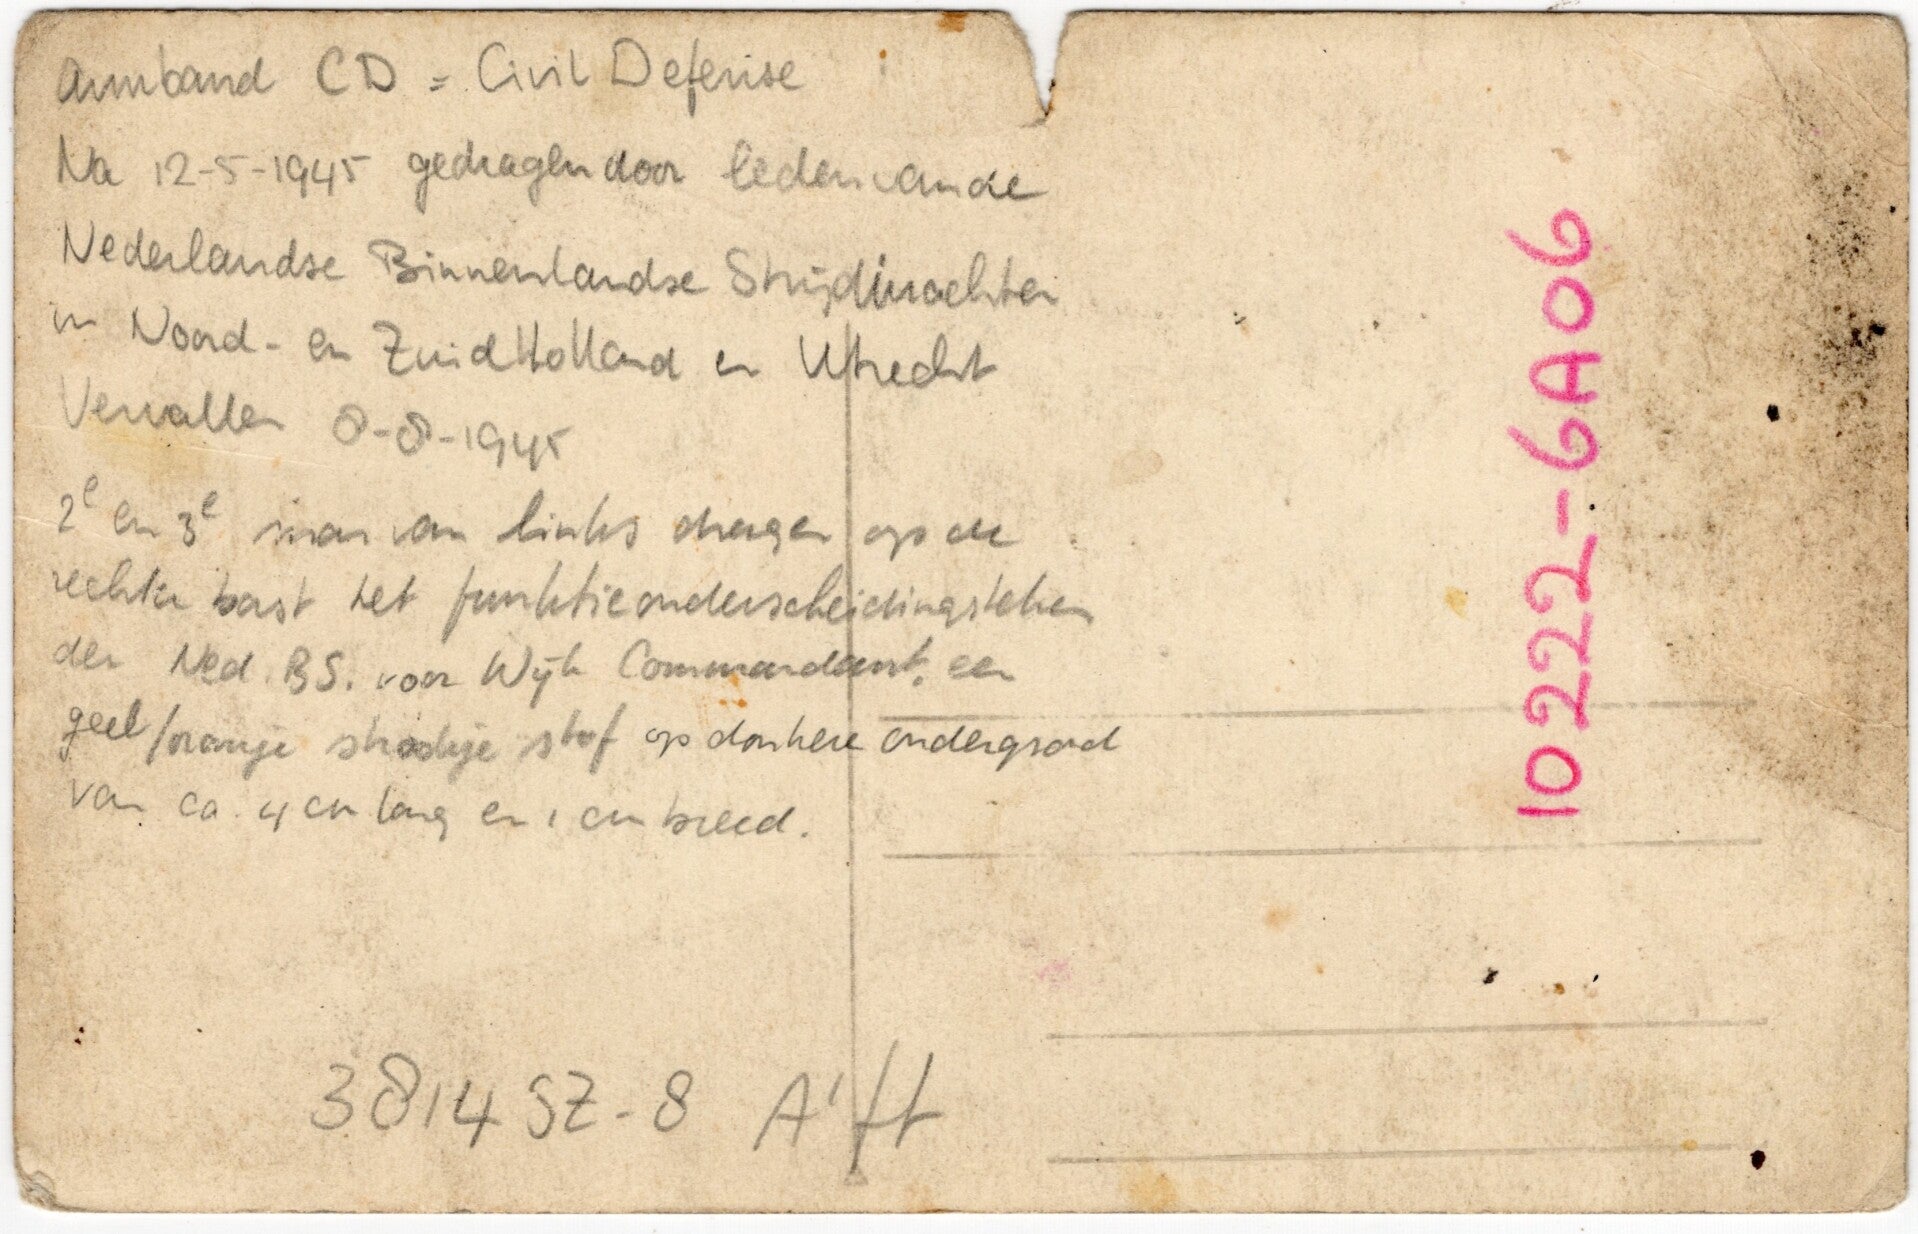 Armband CD = Civil Defense
Na 12-5-1945 gedragen door leden van de
Nederlandse Binnenlandse Strijdmachten
in Noord- en Zuid Holland en Utrecht
Vervallen 8-8-1945
2e en 3e man van links dragen op de
rechter borst het funktieonderscheidingsteken
der Ned. BS. voor Wijk Commandant, een
geel/oranje strookje stof op donkere ondergrond
van ca. 4 cm lang en 1 cm breed.
3814 SZ-8 A'ft
10222-6A06